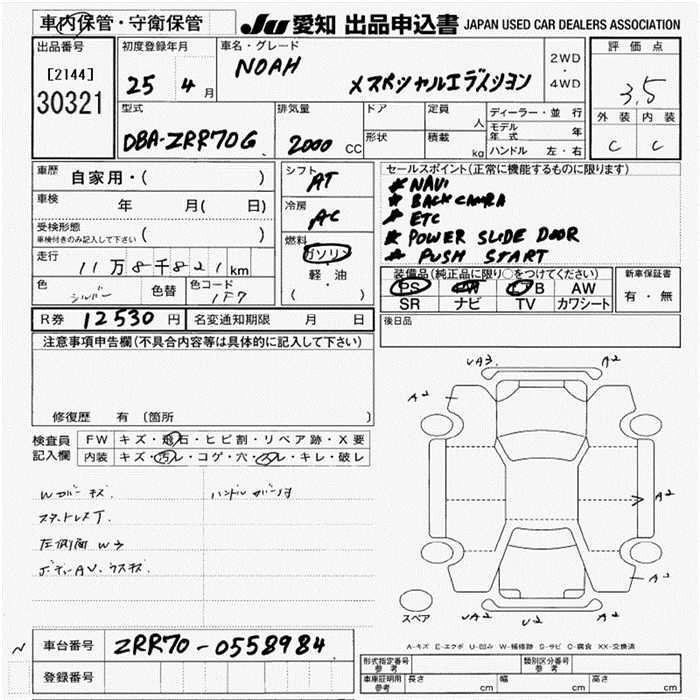 車内保管・守衛保管
JU 愛知 出品申込書 JAPAN USED CAR DEALERS ASSOCIATION
出品番号
[2144]
30321
初度登録年月
25 4 月
車名・グレード
NOAH
メスペシャルエディション
2WD
・
4WD
評価点
3.5
外装 内装
C C
型式
DBA-ZRR70G
排気量
2000 CC
ドア
形状
定員
人
積載
kg
ディーラー・並行
モデル年式 年
ハンドル 左・右
車歴
自家用・( )
車検
年 月( 日)
受検形態
車検付きのみ記入して下さい ( )
走行
11万8千821km
色
シルバー
色替
色コード
1F7
シフト
AT
冷房
AC
燃料
ガソリン
軽・油
( )
セールスポイント(正常に機能するものに限ります)
* NAVI
* BACK CAMRA
* ETC
* POWER SLIDE DOOR
* PUSH START
装備品(純正品に限り○をつけてください)
PS AB AW
SR ナビ TV カワシート
新車保証書
有・無
R券 12530 円
名変通知期限 月 日
後日品
注意事項申告欄(不具合内容等は具体的に記入して下さい)
修復歴 有 〔箇所
検査員
記入欄
FW キズ・飛石・ヒビ割・リペア跡・X要
内装 キズ・汚レ・コゲ・穴・スレ・キレ・破レ
Wカバーキズ.
ハンドルカバー付
スタットレスT.
左側面 W2
ボディーAV.ウスキズ.
UA3.
A2
A2
A2
A2
A2
UA2
U2
A2
スペア
A-キズ E-エクボ U-凹み W-補修跡 S-サビ C-腐食 XX-交換済
N
車台番号
ZRR70-0558984
登録番号
形式指定番号
参考
類別区分番号
参考
車庫証明用
参考
長さ cm
幅 cm
高さ cm